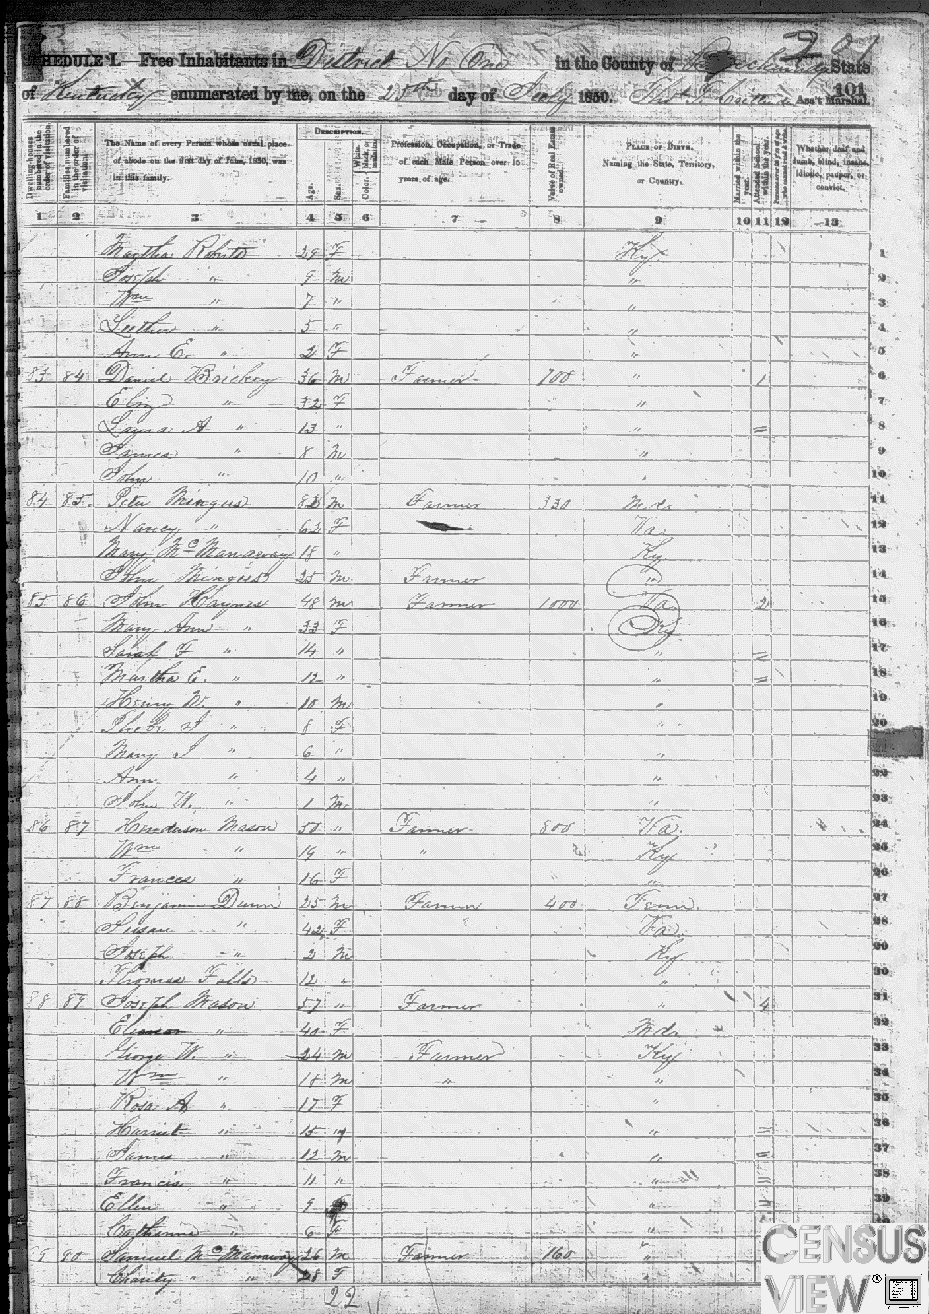 SCHEDULE I.—Free Inhabitants in District No One in the County of State
of Kentucky enumerated by me, on the 25th day of July 1850. Ass't Marshal.
101
Dwelling-houses numbered in the order of visitation.
Families numbered in the order of visitation.
The Name of every Person whose usual place of abode on the first day of June, 1850, was in this family.
DESCRIPTION.
Age.
Sex.
Color.
Profession, Occupation, or Trade of each Male Person over 15 years of age.
Value of Real Estate owned.
PLACE OF BIRTH. Naming the State, Territory, or Country.
Married within the year.
Attended School within the year.
Whether deaf and dumb, blind, insane, idiotic, pauper, or convict.
1 2 3 4 5 6 7 8 9 10 11 12 13
Martha 29 F Ky. 1
Joseph " 9 M " 2
Wm " 7 " " 3
Luther " 5 " " 4
Ann E. " 2 F " 5
83 84 Daniel Brickey 36 M Farmer 700 " 1 6
Eliz " 32 F " 7
Laura A " 13 " " 8
James " 8 M " 9
John " 10 " " 10
84 85 Peter Mingus 82 M Farmer 330 Md. 11
Nancy " 62 F Va. 12
Mary McManaway 18 " Ky 13
John Mingus 25 M Farmer " 14
85 86 John Haynes 48 M Farmer 1000 Va. 2 15
Mary Ann " 33 F Ky 16
Sarah F " 14 " " 17
Martha E. " 12 " " 18
Henry W. " 10 M " 19
" 8 F " 20
Mary J " 6 " "
Ann " 4 " " 22
John W. " 1 M " 23
86 87 Henderson Mason 50 " Farmer 800 Va. 24
Wm " 19 " " Ky 25
Frances " 16 F " 26
87 88 Benjamin Dunn 25 M Farmer 400 Tenn. 27
Susan " 42 F Va. 28
Joseph " 2 M Ky 29
Thomas Falls 12 " " 30
88 89 Joseph Mason 57 " Farmer " 4 31
Eleanor " 40 F Md. 32
George W. " 24 M Farmer Ky 33
Wm " 18 M " " 34
Rosa A " 17 F " 35
Harriet " 15 " " 36
James " 12 M " 37
Francis " 11 " " 38
Ellen " 9 F " 39
Catharine " 6 F "
9 90 Samuel McManaway 26 M Farmer 160 "
Charity " " 28 F "
22
CENSUS
VIEW®